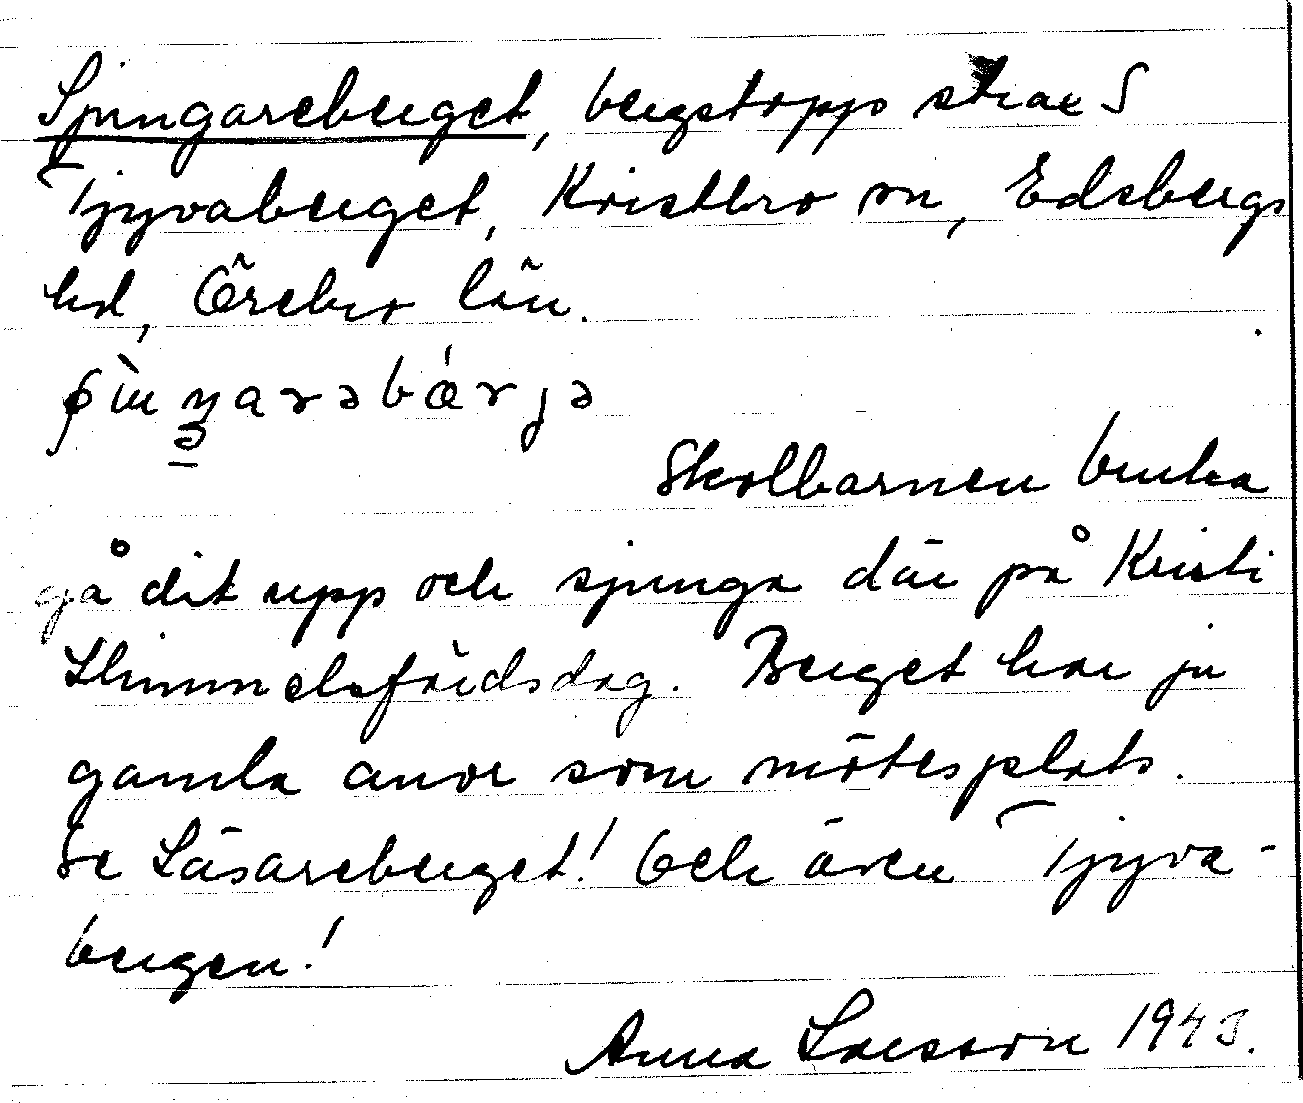 Sjungareberget, bergstopp strax S
Tjyvaberget, Kvistbro sn, Edsbergs
hd, Örebro län.
Skolbarnen bruka
gå dit upp och sjunga där på Kristi
Himmelsfärdsdag. Berget har ju
gamla anor som mötesplats.
Se Läsareberget! Och även Tjyva-
bergen!
Anna Larsson 1943.